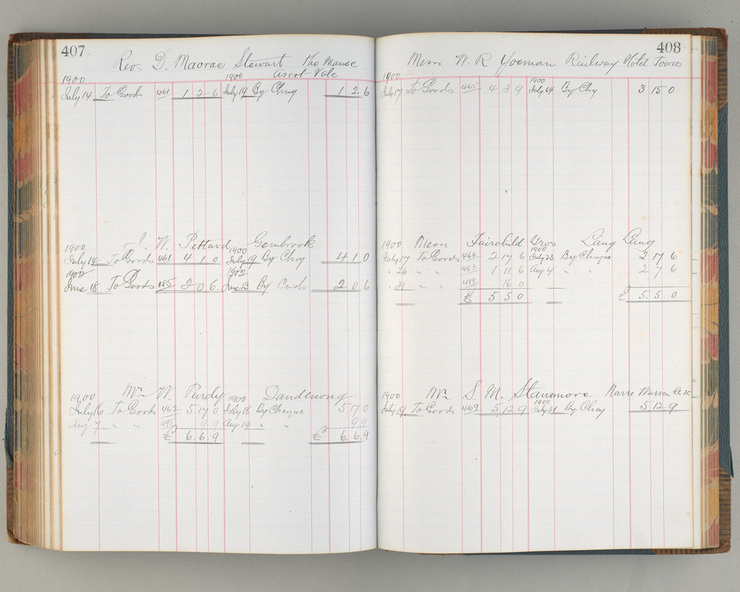 407
Rev. D. Macrae Stewart The Manse
Ascot Vale
1900 1900
July 14 To Goods 461 1 2 6 July 19 By Chq 1 2 6
J. W. Pettard Gembrook
1900 1900
July 14 To Goods 461 4 1 0 July 19 By Chq 4 1 0
1902 1902
June 18 To Goods 2 0 6 By Cash 2 0 6
Mr W. Purdy Dandenong
1900 1900
July 16 To Goods 462 5 17 0 July 18 By Cheque 5 17 0
Aug 7 " " 9 9 Aug 14 " " 9 9
£ 6 6 9 £ 6 6 9
408
Messrs W. R. Yoeman Railway Hotel
1900 1900
July 17 To Goods 465 4 3 9 July 24 By Chq 3 15 0
1900 Messrs Fairchild Bros Lang Lang
1900
July 17 To Goods 466 2 17 6 July 23 By Cheque 2 17 6
" 26 " " 483 1 11 6 Aug 4 " " 2 7 6
" 31 " " 16 0
£ 5 5 0 £ 5 5 0
1900 Mr S. M. Stanmore Narre Warren
1900
July 19 To Goods 469 5 12 9 By Chq 5 12 9